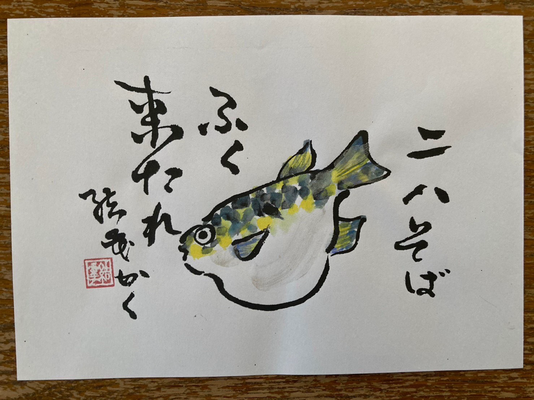 二八そば
ふく
来たれ
かく